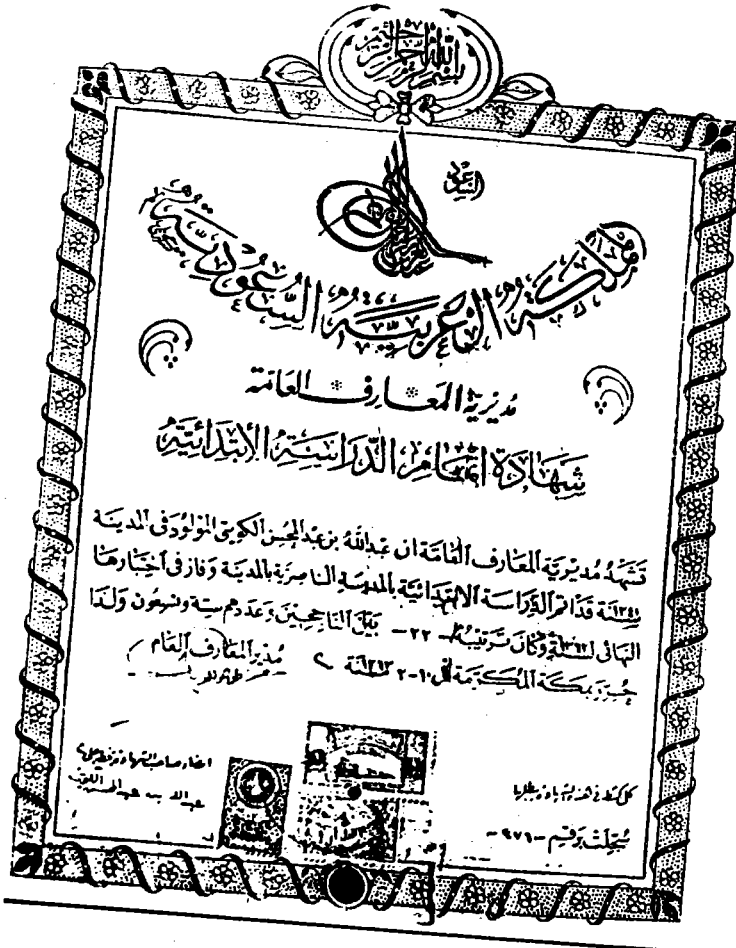 بسم الله الرحمن الرحيم
المملكة العربية السعودية
مديرية المعارف العامة
شهادة اتمام الدراسة الابتدائية
تشهد مديرية المعارف العامة ان عبدالله بن عبدالمحسن الكويتي المولود في المدينة
سنة قد اتم الدراسة الابتدائية بالمدرسة الناصرية بالمدينة وفاز في اختبارها
النهائي لسنة وكان ترتيبه -٢٢- بين الناجحين وعددهم ستة وتسعون ولدا
حرر بمكة المكرمة في
مدير المعارف العام
امضاء صاحب الشهادة
كل كشط في هذه الشهادة يبطلها
سجلت برقم -٩٧١-